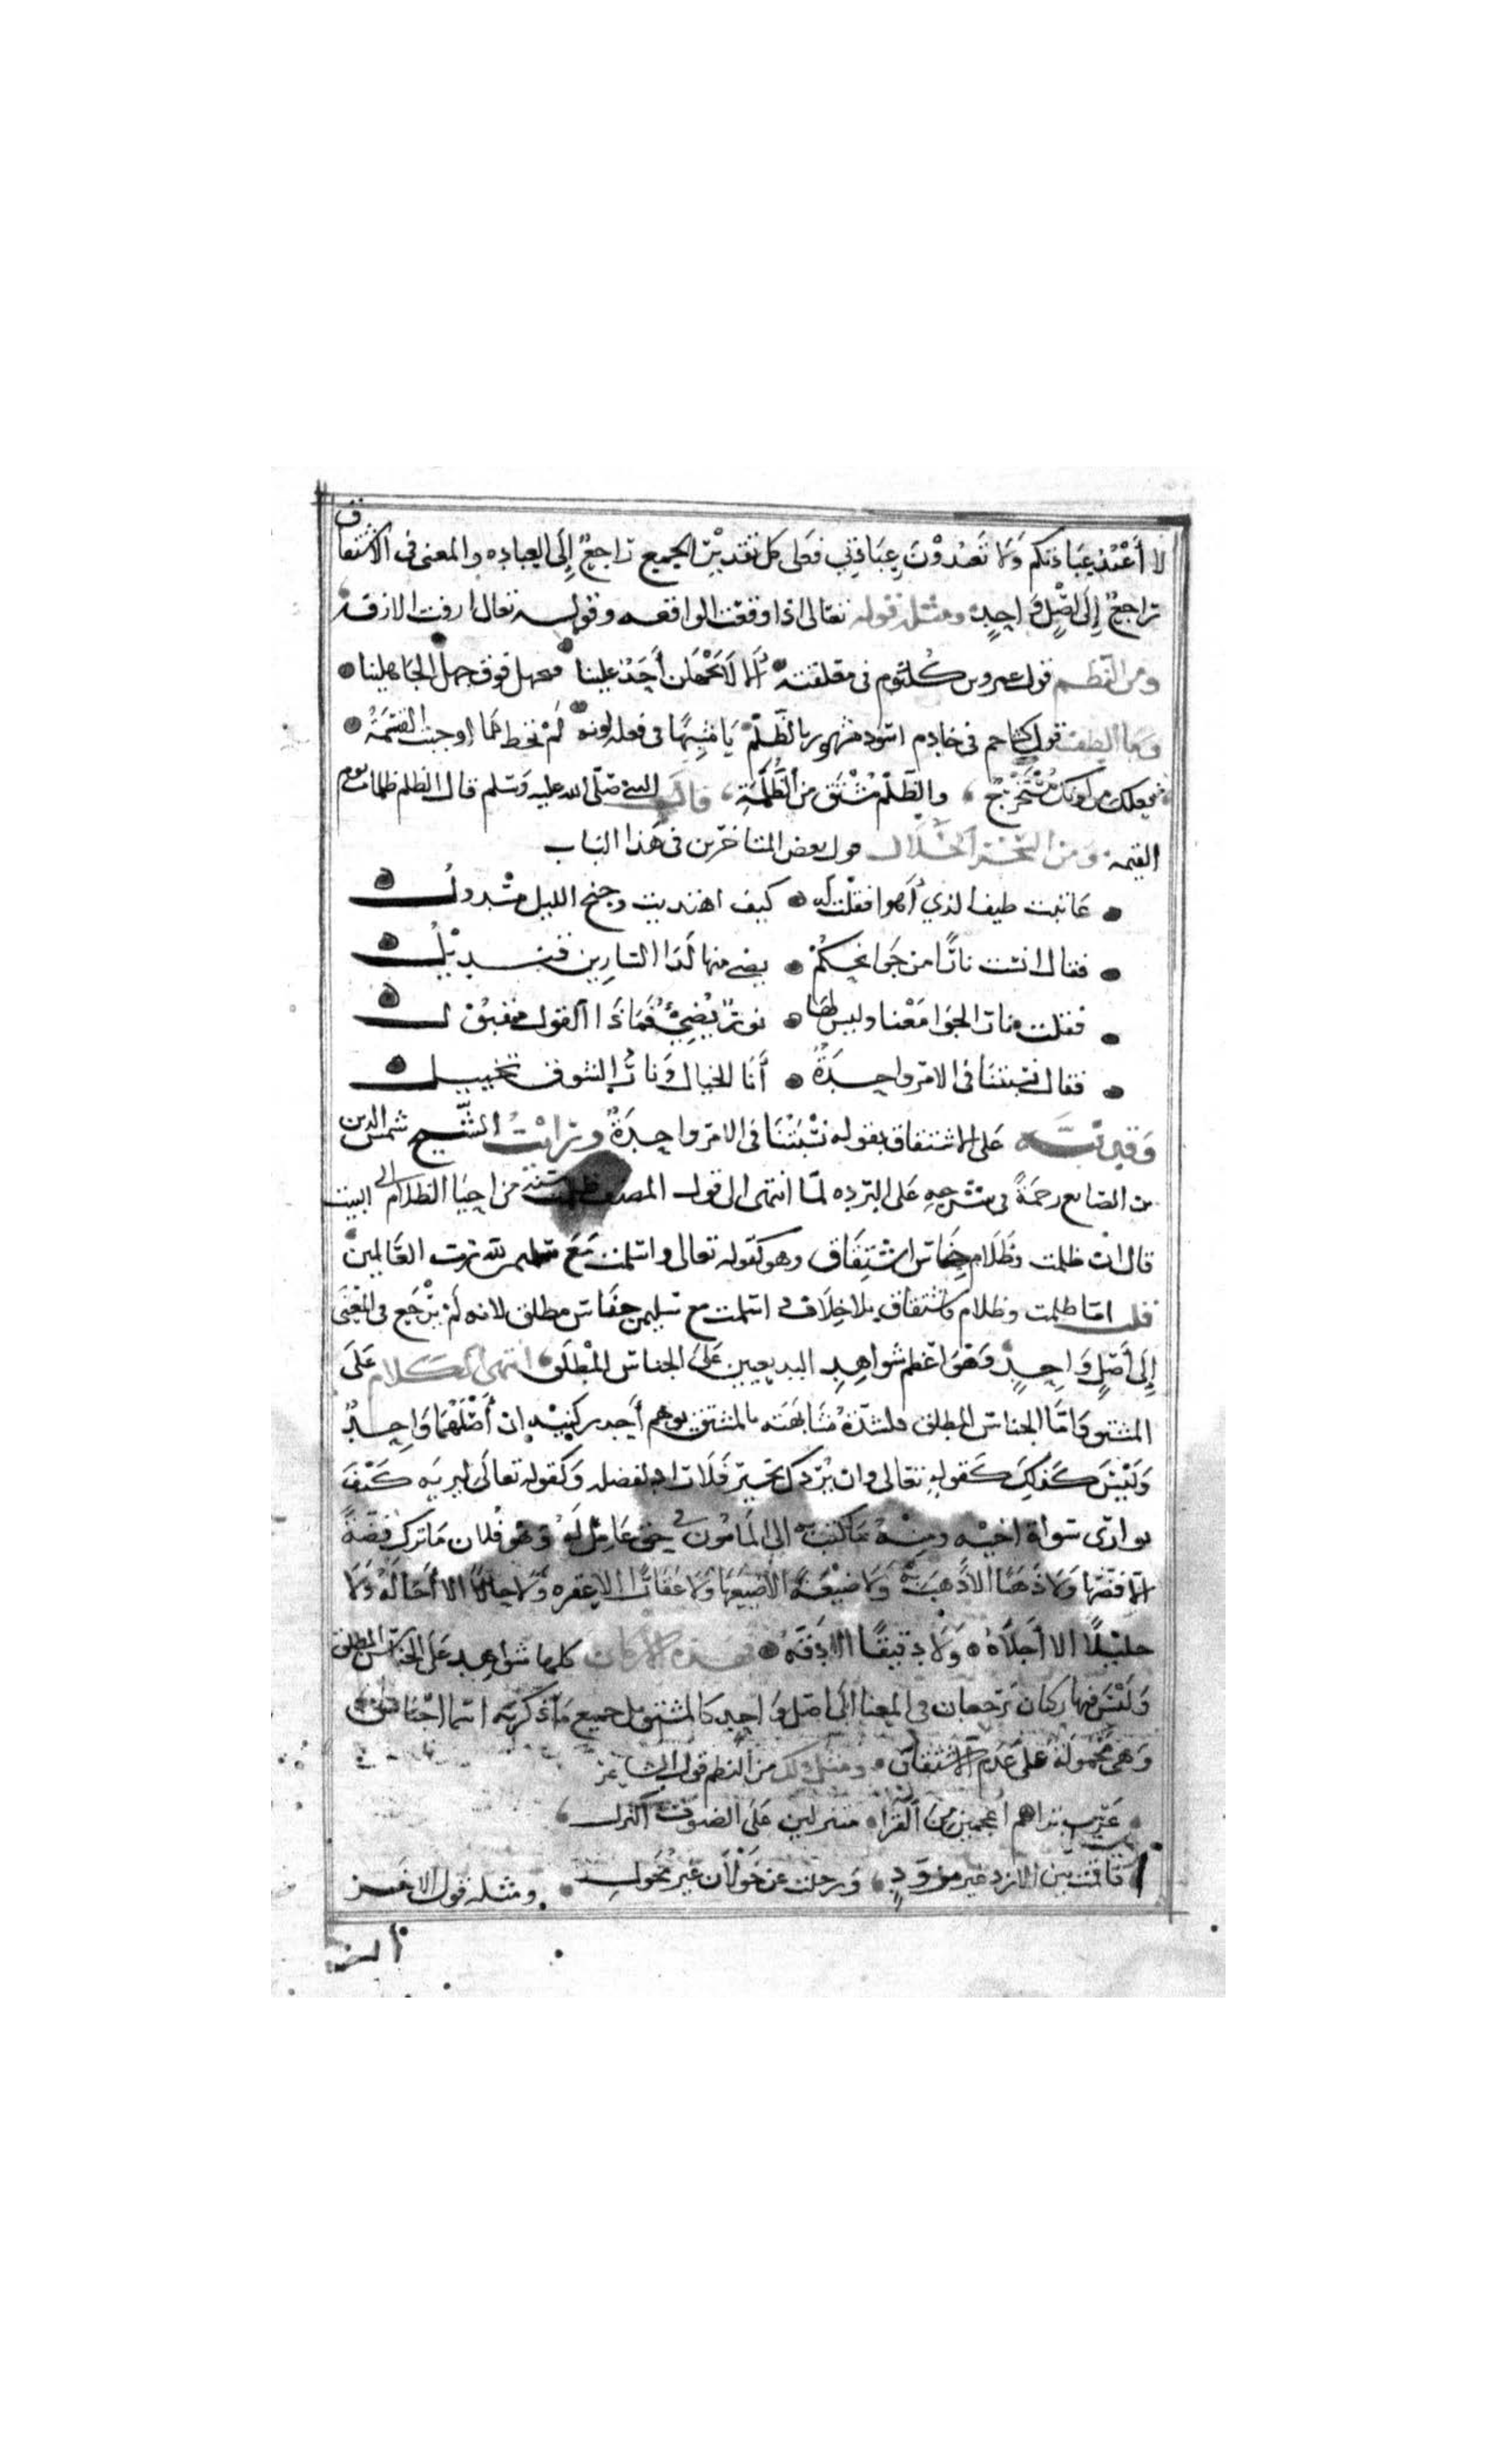 لا أعبد عبادتكم ولا تعبدون عبادتي فعلى كل تقدير الجميع راجع إلى العباده والمعنى في الاشتقاق
يراجع إلى اصل واحد ومثله قوله تعالى اذا وقعت الواقعه وقوله تعالى ازفت الازفة
ومن النظم قول عمرو بن كلثوم في معلقته ألا لا يجهلن أحد علينا فنجهل فوق جهل الجاهلينا
وما الطف قول كشاجم في خادم اسود مشهور بالظلم يا مشبها في فعله لونه لم تخط ما اوجبت القسمة
فعلك من لونك مستخرج والظلم مشتق من الظلمة قال النبي صلى الله عليه وسلم قال الظلم ظلمات يوم
القيمة ومن السحر الحلال قول بعض المتاخرين في هذا الباب
عاتبت طيف الذي أهوا فقلت له كيف اهتديت وجنح الليل مسدول
فقال انست نارا من جوانحكم يضي منها لدا السارين قنديل
فقلت نار الجوا معنا وليس لها نور يضيء فماذا القول مقبول
فقال نسبتنا في الامر واحدة أنا الخيال ونار الشوق تخييل
وقد نبه على الاشتقاق بقوله نسبتنا في الامر واحدة ورايت الشيخ شمس الدين
بن الصايغ رحمة في شرحه على البرده لما انتهى الى قول المصنف ظلمت سنة من احيا الظلام الى البيت
قال ان ظلمت وظلام جناس اشتقاق وهو كقوله تعالى واسلمت مع سليمن لله رب العالمين
قلت اما ظلمت وظلام فاشتقاق بلا خلاف و اسلمت مع سليمن جناس مطلق لانه لم يرجع في المعنى
إلى أصل واحد وهو اعظم شواهد البديعيين على الجناس المطلق انتهى الكلام على
المشتق واما الجناس المطلق فلشدة مشابهته بالمشتق يوهم أحد ركنيه ان أصلهما واحد
وليس كذلك كقوله تعالى وان يردك بخير فلا راد لفضله وكقوله تعالى ليريه كيف
يوارى سوأة اخيه ومنه ما كتب به الى المامون في حق عامل له وهو فلان ما ترك فضة
الا فضها ولا ذهبا الا أذهبه ولا ضيعة الا ضيعها ولا عقارا الا عقره ولا حالا الا أحاله ولا
جليلا الا أجلاه ولا دقيقا الا دقه فهذه الاركان كلها شواهد على الجناس المطلق
وليس فيها ركان يرجعان في المعنا الى اصل واحد كالمشتق بل جميع ما ذكرته اسما اجناس
وهي محمولة على عدم الاشتقاق ومثل ذلك من النظم قول الشاعر
عرب تراهم اعجمين من القرا متنزلين على الضيوف النزل
فاقمت بين الازد غير مزود ورحلت عن خولان غير مخول ومثله قول الاخر